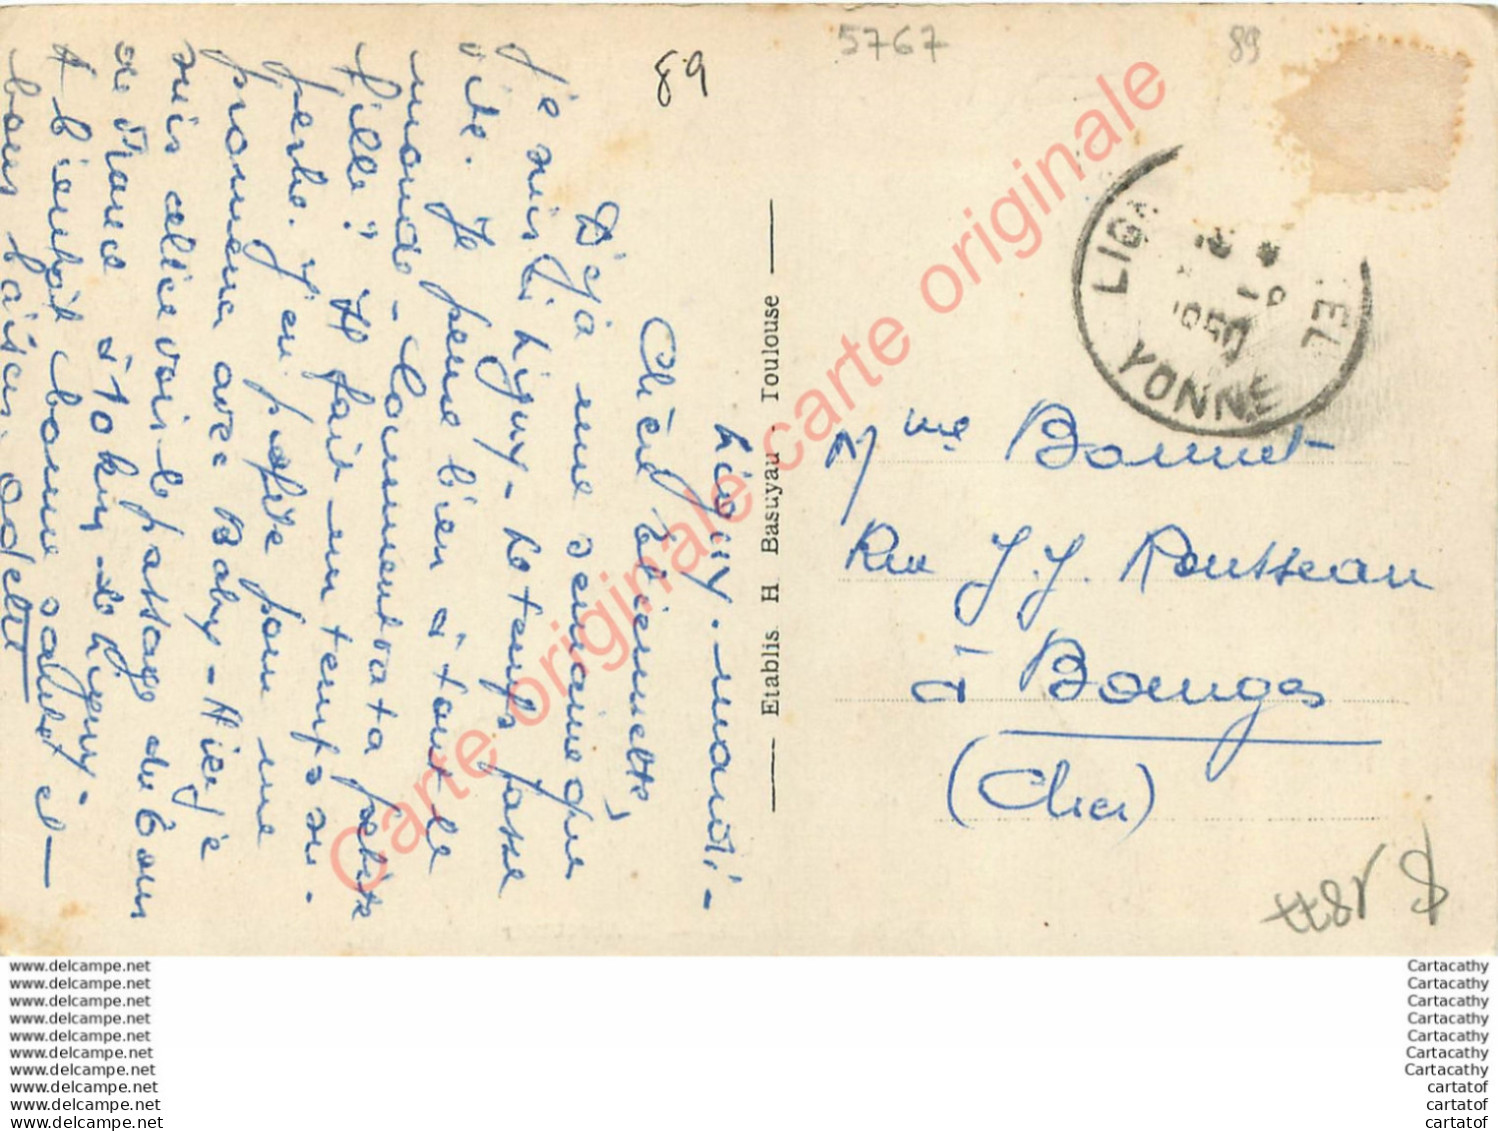 Ligny. mardi -
Chère Etiennette,
Déjà une semaine que
je suis à Ligny - Le temps passe
vite. Je pense bien à tout le
monde - Comment va ta petite
fille? Il fait un temps su-
perbe. J'en profite pour me
promener avec Baby - Hier je
suis allée voir le passage du Tour
de France à 10 km de Ligny -
A bientôt bonne santé et
bons baisers. Odette
Etablis H Basuyau - Toulouse
5767
89
89
LIG EL
18
1950
YONNE
Mme Bonnet
Rue J.J. Rousseau
à Bourges
(Cher)
Carte originale carte originale
www.delcampe.net
www.delcampe.net
www.delcampe.net
www.delcampe.net
www.delcampe.net
www.delcampe.net
www.delcampe.net
www.delcampe.net
www.delcampe.net
www.delcampe.net
Cartacathy
Cartacathy
Cartacathy
Cartacathy
Cartacathy
Cartacathy
Cartacathy
cartatof
cartatof
cartatof